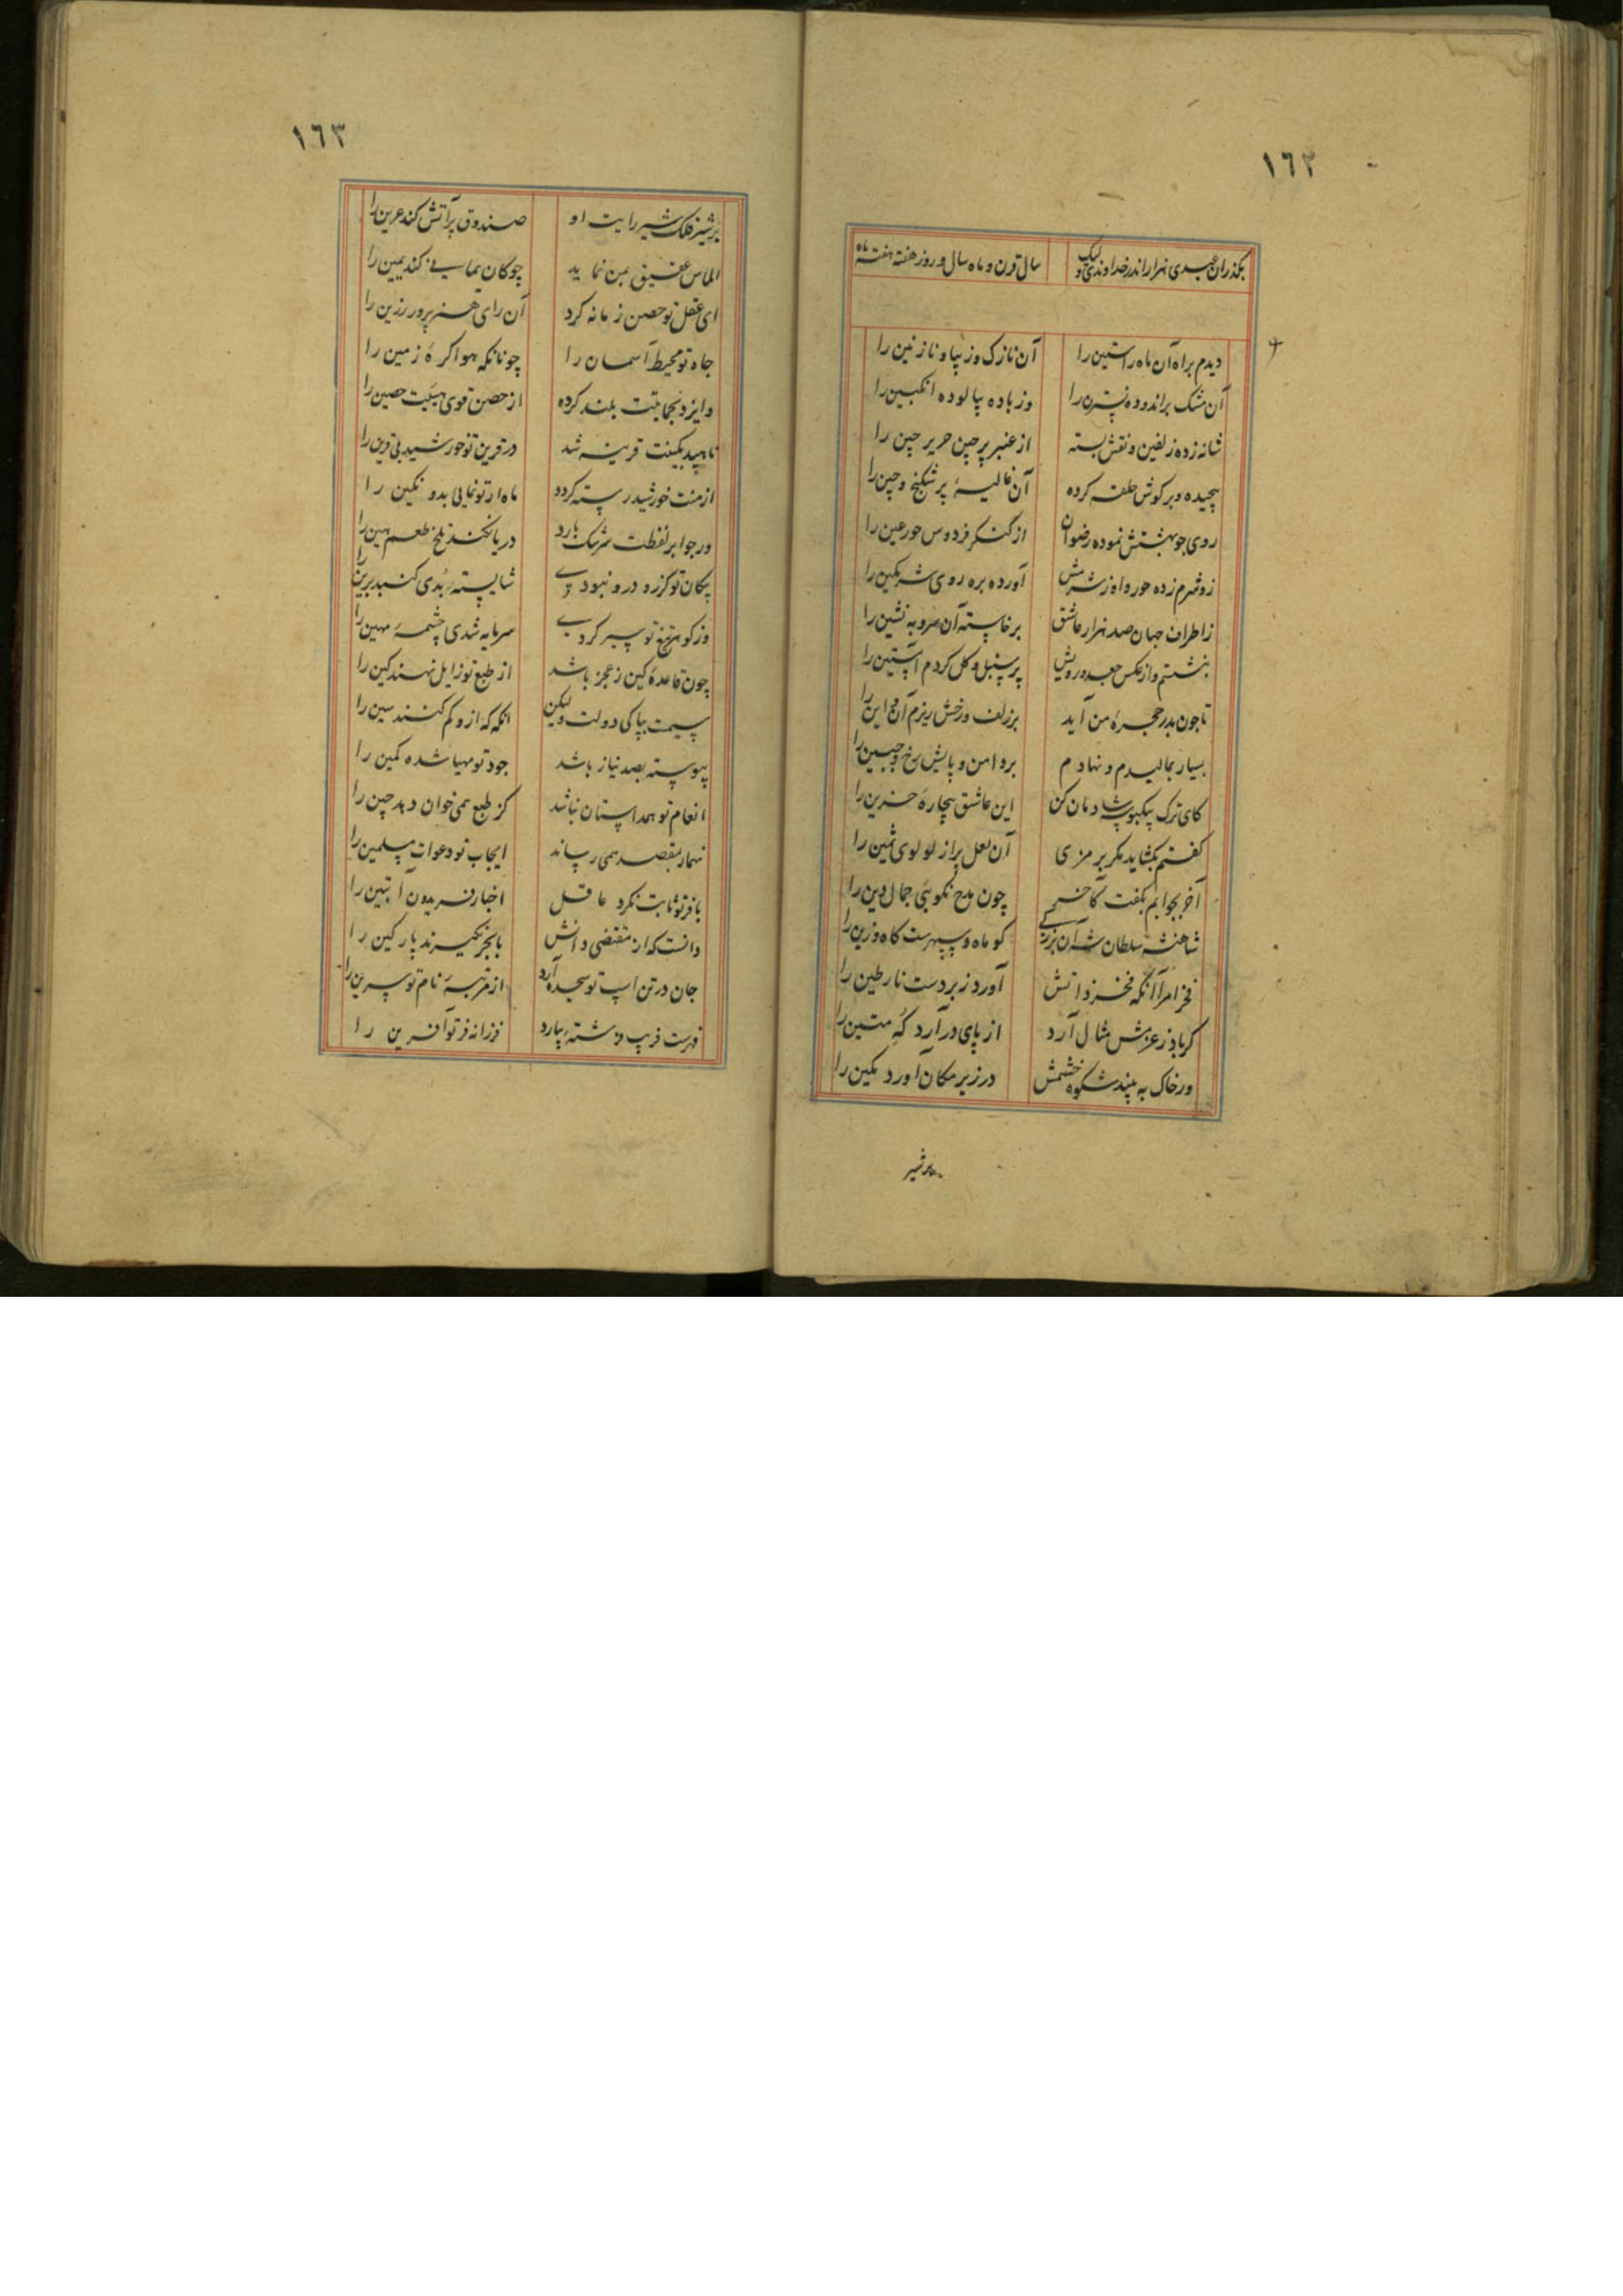 ١٦٢
بگذران عیدی هزار اندر خداوندی ولیک سال قرن و ماه سال و روز هفته هفته ماه
دیدم براه آن ماه راستین را آن نازک و زیبا و نازنین را
آن مشک براندوده نسترن را وز باده پالوده انگبین را
شانه زده زلفین و نقش بسته از عنبر پرچین حریر چین را
پیچیده و بر کوش حلقه کرده آن غالیهٔ پر شکنج و چین را
روی چو بهشتش نموده رضوان از کنگر فردوس حور عین را
زو شرم زده حور و او ز شرمش آورده بره روی شرمگین را
ز اطراف جهان صد هزار عاشق برخاسته آن سرو به نشین را
بنشستم و از عکس جعد و رویش پر سنبل و کل کردم آستین را
تا چون بدر حجرهٔ من آید بر زلف و رخش ریزم آن و این را
بسیار بمالیدم و نهادم بر دامن و پایش رخ و جبین را
کای ترک شادمان کن این عاشق بیچارهٔ حزین را
گفتم بگشاید مگر برمزی آن لعل پر از لولوی ثمین را
آخر بجوابم بگفت کاخر چون مدح نگوئی جمال دین را
شاهنشه سلطان نشان بزرگی کو ماه و سپهرست گاه و زین را
فخر امرا آنکه فخر ذاتش آورد زبردست نار طین را
گر باد ز عزمش مثال آرد از پای درآرد که متین را
ور خاک به بیند شکوه خشمش در زیر مکان آورد مکین را
بر شیر
١٦٣
بر شیر فلک شیر رایت او صندوق پر آتش کند عرین را
الماس عقیق یمن نماید چو کان یمانی کند یمین را
ای عقل تو حصن زمانه کرد آن رای هنرپرور رزین را
جاه تو محیط آسمان را چونانکه هوا کرهٔ زمین را
و ایزد بحمایتت بلند کرده از حصن قوی هیئت حصین را
ناهید بگینت قرینه شد در قرین تو خورشید بی قرین را
از منت خورشید رسته گردد ماه ار تو نمائی بدو نگین را
ور جو ابر لفظت سرشک بارد دریا نکند تلخ طعم هین را
پیکان تو گر زو درو نبودی شایسته بدی گنبد برین را
ور گوهر تیغ تو سیر کردی سرمایه شدی چشمهٔ مهین را
چون قاعدهٔ کین ز عجز باشد از طبع تو زایل نهند کین را
سیمت بپاکی دولت ولیکن انکه که ازو کم کنند سین را
پیوسته بصد نیاز باشد جود تو مهیا شده کمین را
انعام تو همداستان نباشد کز طبع همی خوان دهد چین را
نهمار بمقصد همی رساند ایجاب تو دعوات مسلمین را
با فر تو ثابت نکرد عاقل اخبار فریدون آبتین را
دانست که از مقتضی دانش با بحر نگیرند پارگین را
جان در تن اسپ تو سجده آرد از مرتبهٔ نام تو سرین را
فهرست فریب فرشته پندارد فرزانه فر تو آفرین را